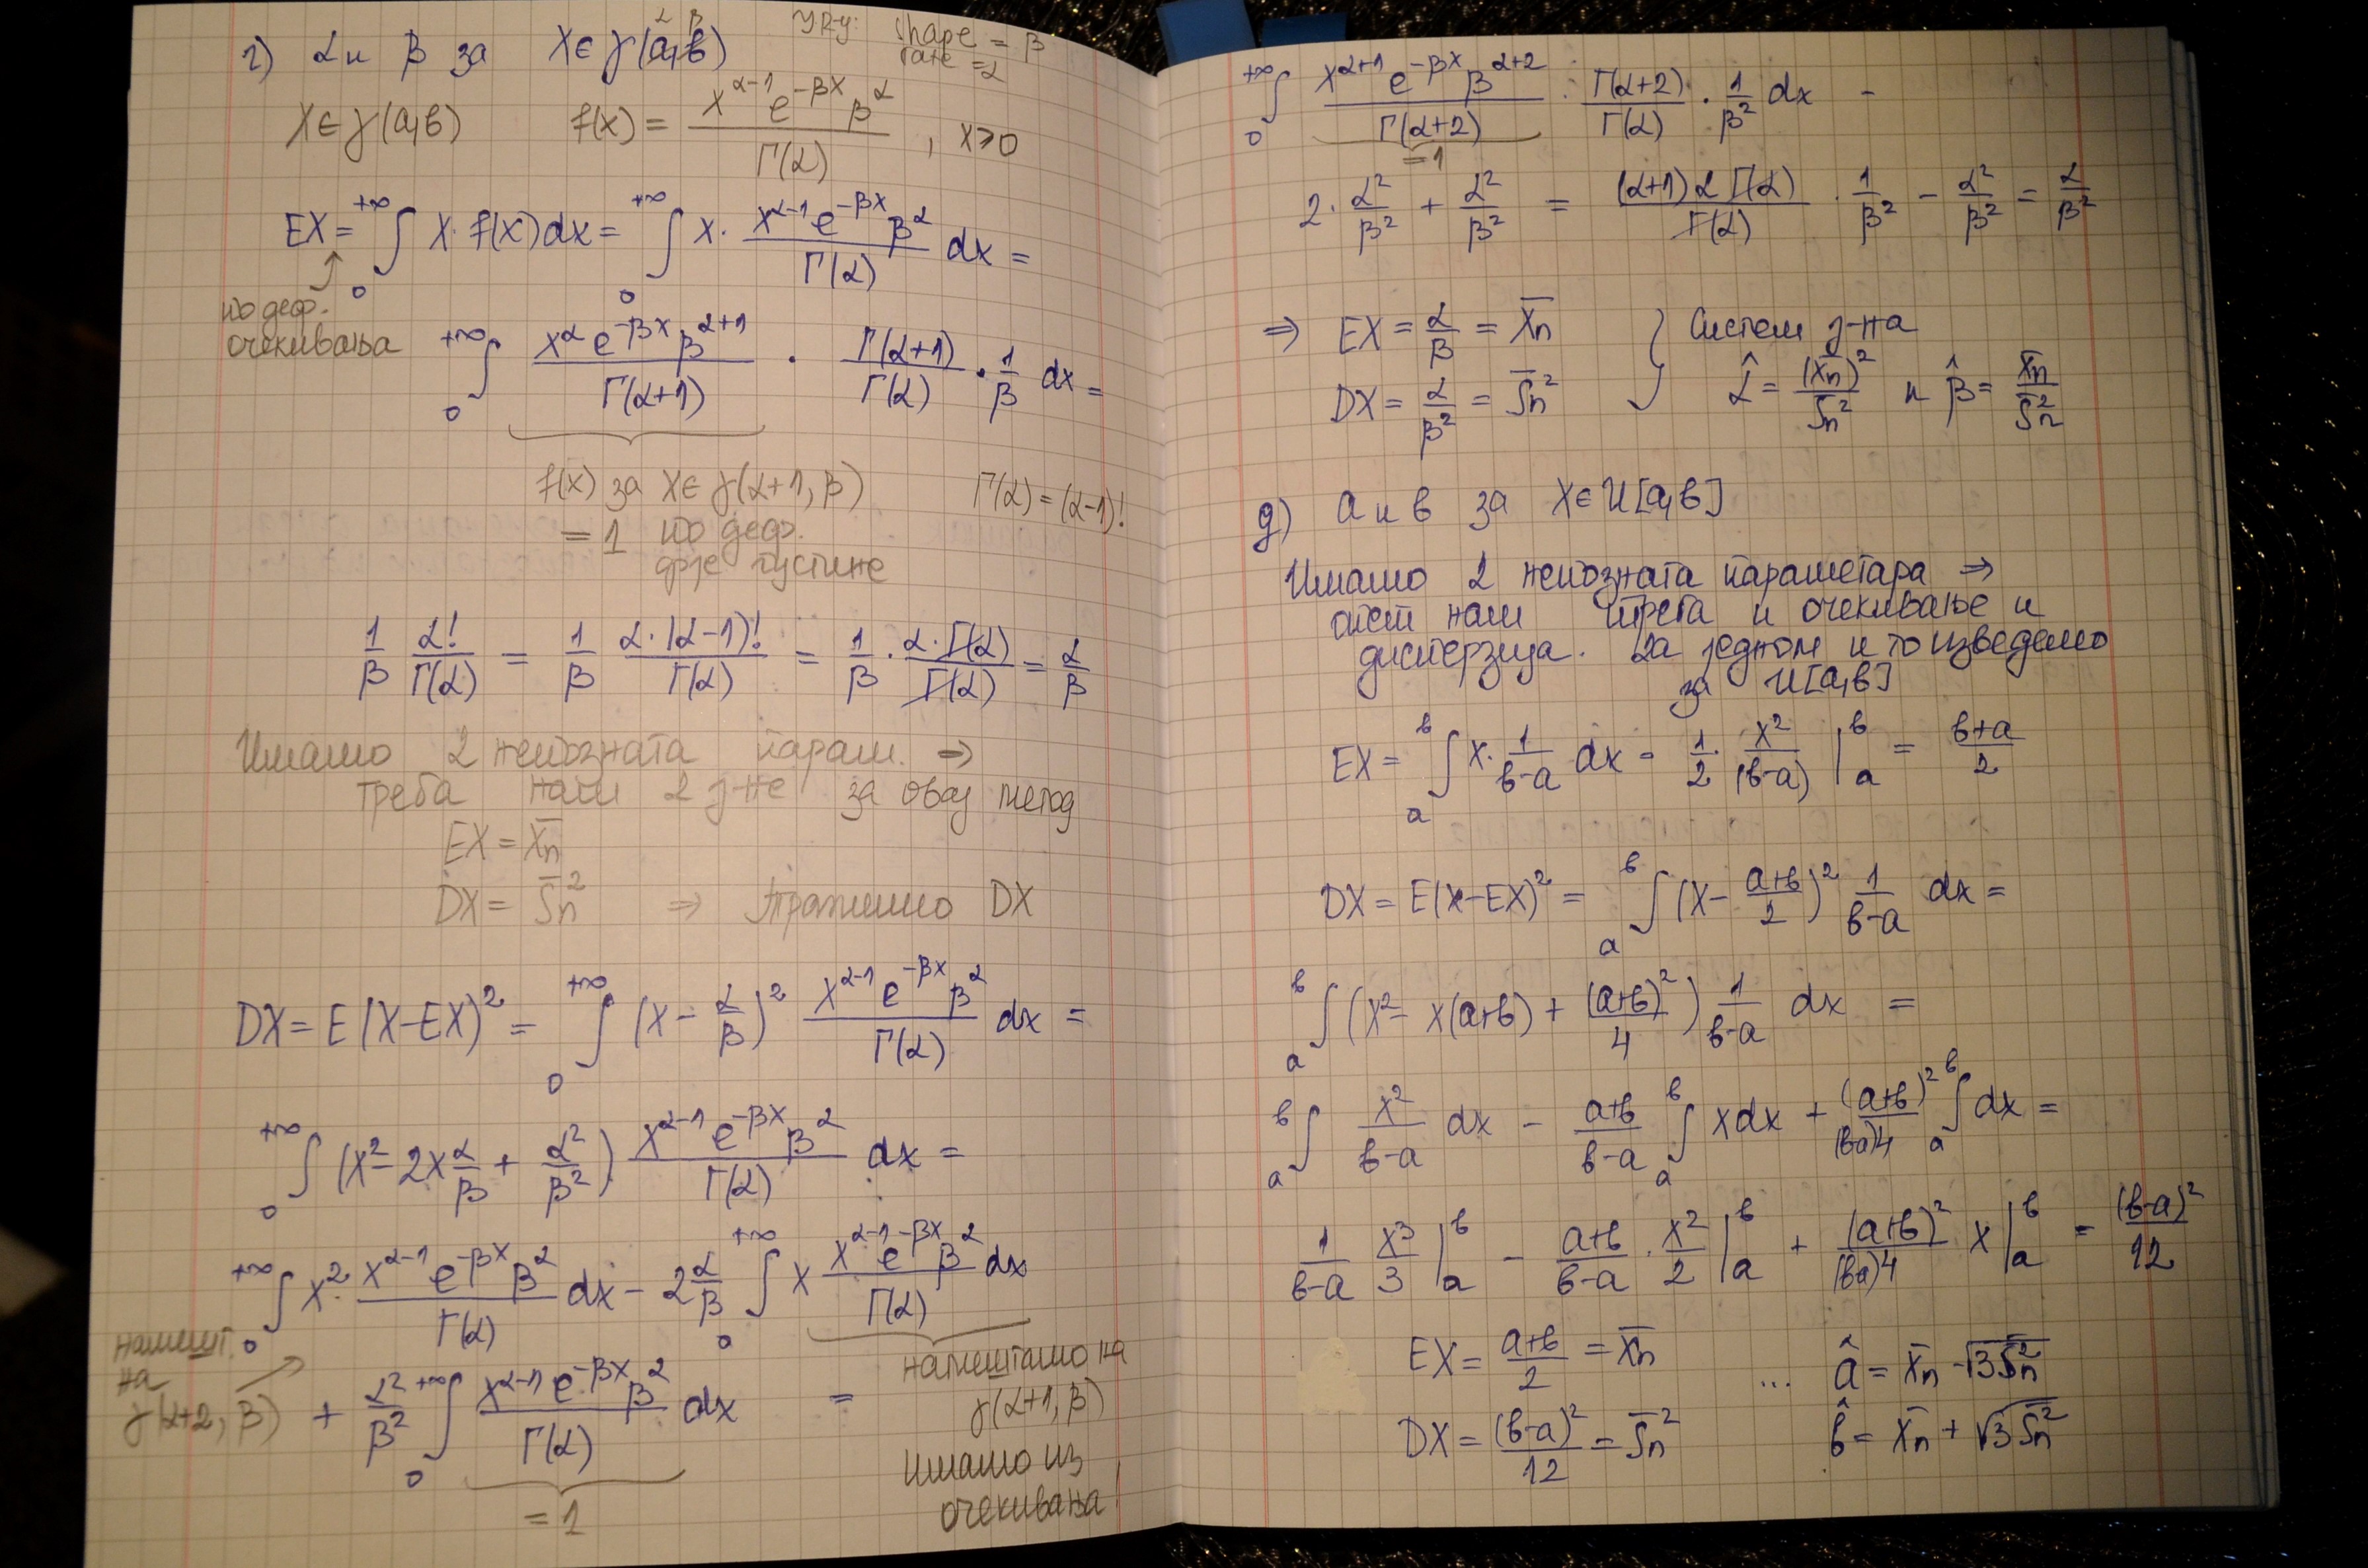 г) α и β за X∈γ(a,b)
α β
У R-у: shape = β
rate = α
X∈γ(a,b) f(x) = \frac{x^{α-1} e^{-βx} β^α}{Γ(α)}, x≥0
EX = ∫_0^{+∞} x·f(x)dx = ∫_0^{+∞} x· \frac{x^{α-1} e^{-βx} β^α}{Γ(α)} dx =
по деф.
очекивања
∫_0^{+∞} \frac{x^α e^{-βx} β^{α+1}}{Γ(α+1)} · \frac{Γ(α+1)}{Γ(α)} · \frac{1}{β} dx =
f(x) за X∈γ(α+1, β)
Γ(α) = (α-1)!
= 1 по деф.
фје густине
\frac{1}{β} \frac{α!}{Γ(α)} = \frac{1}{β} \frac{α·(α-1)!}{Γ(α)} = \frac{1}{β} · \frac{α·Γ(α)}{Γ(α)} = \frac{α}{β}
Имамо 2 непозната парам. ⇒
треба нам 2 ј-не за овај метод
EX = \bar{X}_n
DX = \bar{S}_n^2 ⇒ Тражимо DX
DX = E(X-EX)^2 = ∫_0^{+∞} (x - \frac{α}{β})^2 \frac{x^{α-1} e^{-βx} β^α}{Γ(α)} dx =
∫_0^{+∞} (x^2 - 2x\frac{α}{β} + \frac{α^2}{β^2}) \frac{x^{α-1} e^{-βx} β^α}{Γ(α)} dx =
∫_0^{+∞} x^2 · \frac{x^{α-1} e^{-βx} β^α}{Γ(α)} dx - 2\frac{α}{β} ∫_0^{+∞} x \frac{x^{α-1} e^{-βx} β^α}{Γ(α)} dx
намешт.
на
γ(α+2, β)
+ \frac{α^2}{β^2} ∫_0^{+∞} \frac{x^{α-1} e^{-βx} β^α}{Γ(α)} dx =
= 1
намештамо на
γ(α+1, β)
имамо из
очекивања!
∫_0^{+∞} \frac{x^{α+1} e^{-βx} β^{α+2}}{Γ(α+2)} · \frac{Γ(α+2)}{Γ(α)} · \frac{1}{β^2} dx -
= 1
2·\frac{α^2}{β^2} + \frac{α^2}{β^2} = \frac{(α+1)α Γ(α)}{Γ(α)} · \frac{1}{β^2} - \frac{α^2}{β^2} = \frac{α}{β^2}
⇒ EX = \frac{α}{β} = \bar{X}_n } Систем ј-на
DX = \frac{α}{β^2} = \bar{S}_n^2 \hat{α} = \frac{(\bar{X}_n)^2}{\bar{S}_n^2} и \hat{β} = \frac{\bar{X}_n}{\bar{S}_n^2}
д) a и b за X∈U[a,b]
Имамо 2 непозната параметара ⇒
опет нам треба и очекивање и
дисперзија. Да једном и то изведемо
за U[a,b]
EX = ∫_a^b x·\frac{1}{b-a} dx = \frac{1}{2}·\frac{x^2}{(b-a)} |_a^b = \frac{b+a}{2}
DX = E(X-EX)^2 = ∫_a^b (x - \frac{a+b}{2})^2 \frac{1}{b-a} dx =
∫_a^b (x^2 - x(a+b) + \frac{(a+b)^2}{4}) \frac{1}{b-a} dx =
∫_a^b \frac{x^2}{b-a} dx - \frac{a+b}{b-a} ∫_a^b x dx + \frac{(a+b)^2}{(b-a)4} ∫_a^b dx =
\frac{1}{b-a} \frac{x^3}{3} |_a^b - \frac{a+b}{b-a} · \frac{x^2}{2} |_a^b + \frac{(a+b)^2}{(b-a)4} x |_a^b = \frac{(b-a)^2}{12}
EX = \frac{a+b}{2} = \bar{X}_n ... \hat{a} = \bar{X}_n - \sqrt{3\bar{S}_n^2}
DX = \frac{(b-a)^2}{12} = \bar{S}_n^2 \hat{b} = \bar{X}_n + \sqrt{3\bar{S}_n^2}